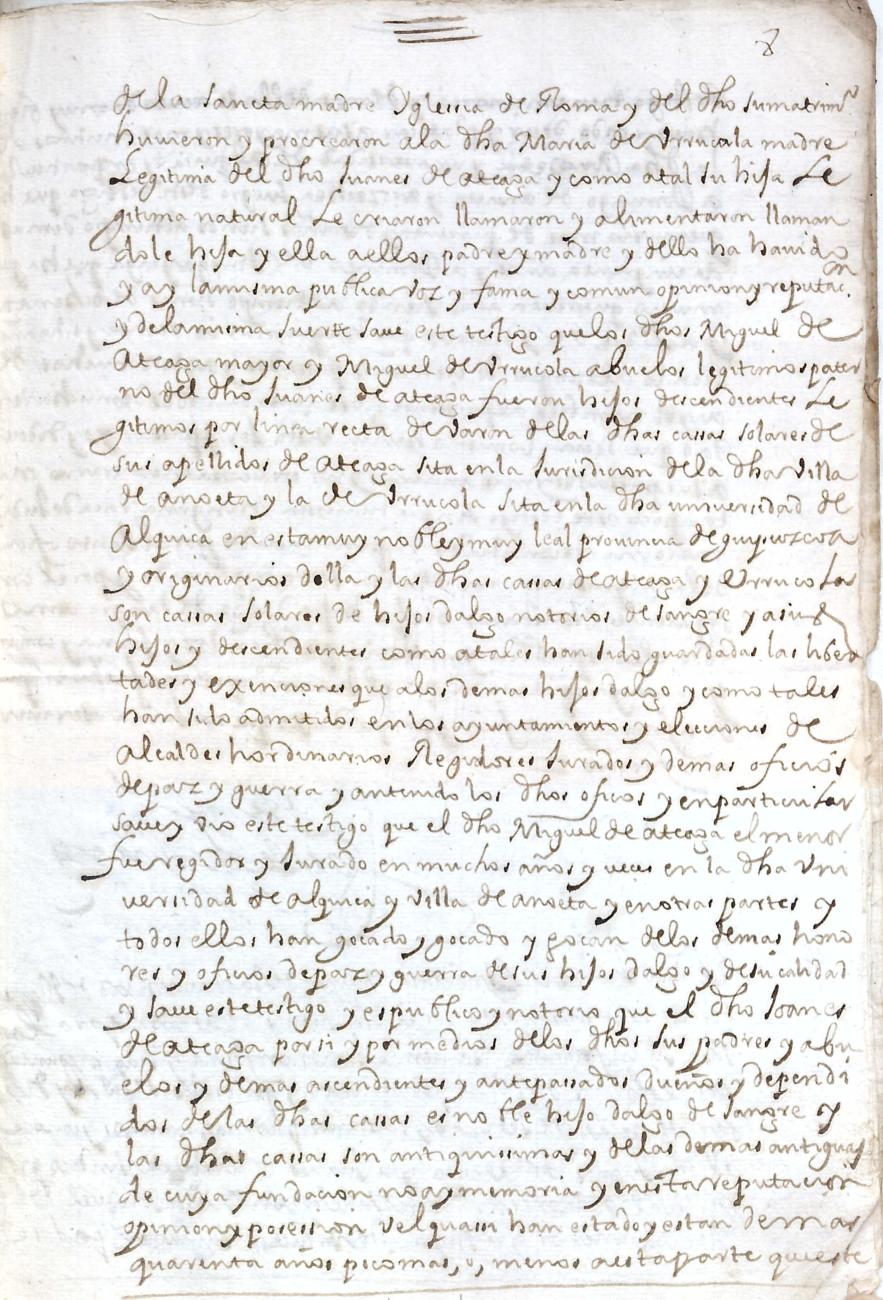 8
de la sancta madre Yglesia de Roma y del dho sumatrim°
huvieron y procrearon ala dha Maria de Vrrucola madre
Legitima del dho Juanes de ateaga y como atal su hija Le
gitima natural Le criaron llamaron y alimentaron llaman
dole hija y ella aellos padre y madre y dello ha havido
y ay lamisma publica voz y fama y comun opinion y reputac.on
y delamisma suerte save este testigo que los dhos Miguel de
Ateaga mayor y Miguel de Vrrucola abuelos legitimos pater
no del dho Juanes de ateaga fueron hijos descendientes Le
gitimos por linea recta de varon delas dhas cassas solares de
sus apellidos de Ateaga sita enla Jurisdicion dela dha villa
de anoeta y la de Vrrucola sita enla dha universidad de
Alquiça en estamuy noble y muy leal provincia de guipuzcoa
y originarios della y las dhas cassas de Ateaga y Vrrucola
son cassas solares de hijos dalgo notorios de sangre y asus
hijos y descendientes como atales han sido guardadas las liber
tades y exenciones que alos demas hijos dalgo y como tales
han sido admitidos en los ayuntamientos y elecciones de
Alcaldes hordinarios Regidores Jurados y demas oficios
de paz y guerra y antenido los dhos oficios y en particular
save y vio este testigo que el dho Miguel de ateaga el menor
fue regidor y Jurado en muchos años y veces en la dha Vni
versidad de alquiça y villa de anoeta y en otras partes y
todos ellos han goçado y goçado y goçan delos demas hono
res y oficios de paz y guerra de sus hijos dalgo y de su calidad
y save este testigo y es publico y notorio que el dho Joanes
de ateaga por si y por medios delos dhos sus padres y abu
elos y demas ascendientes y antepassados dueños y dependi
dos de las dhas cassas es noble hijo dalgo de sangre y
las dhas cassas son antiquissimas y delas demas antiguas
de cuya fundacion no ay memoria y en esta reputacion
opinion y possession vel quasi han estado y estan de mas
quarenta años poco mas, o, menos aesta parte que este